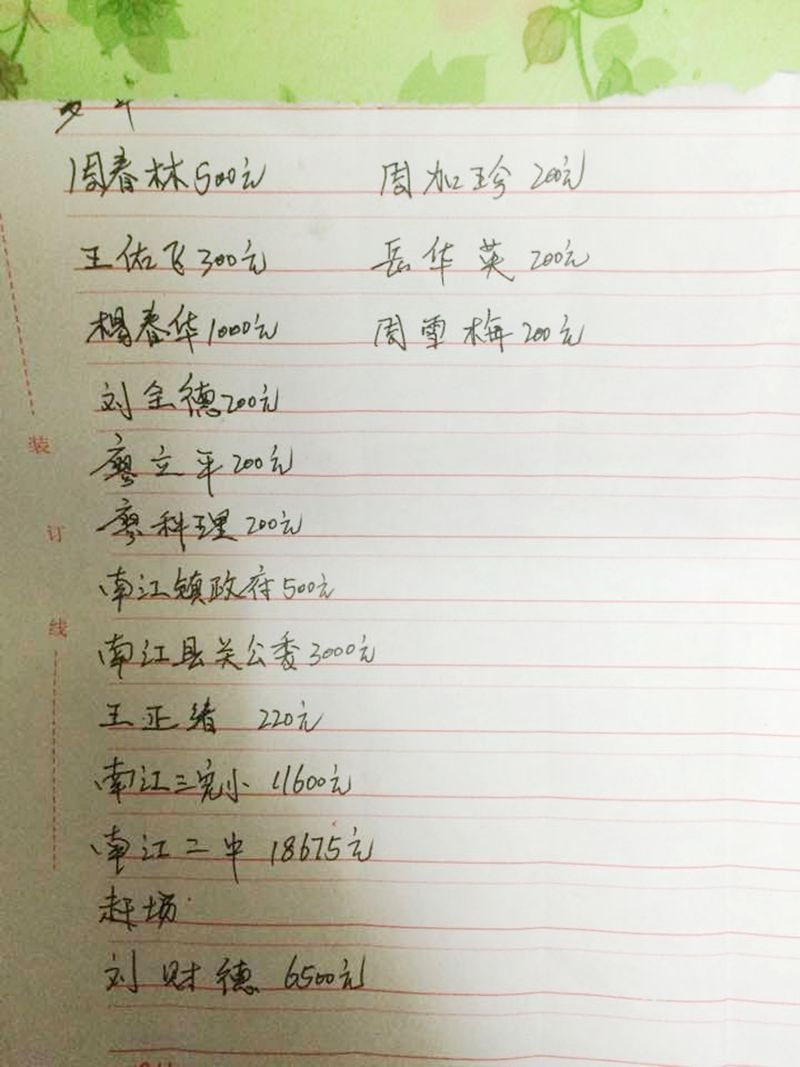 周春林500元 周加珍 200元
王佑飞300元 岳华英 200元
杨春华1000元 周雪梅200元
刘全德200元
廖立平200元
廖科理200元
南江镇政府500元
南江县关公委3000元
王正绪 220元
南江三完小 11600元
南江二中 18675元
赶场
刘财德 6500元
装
订
线